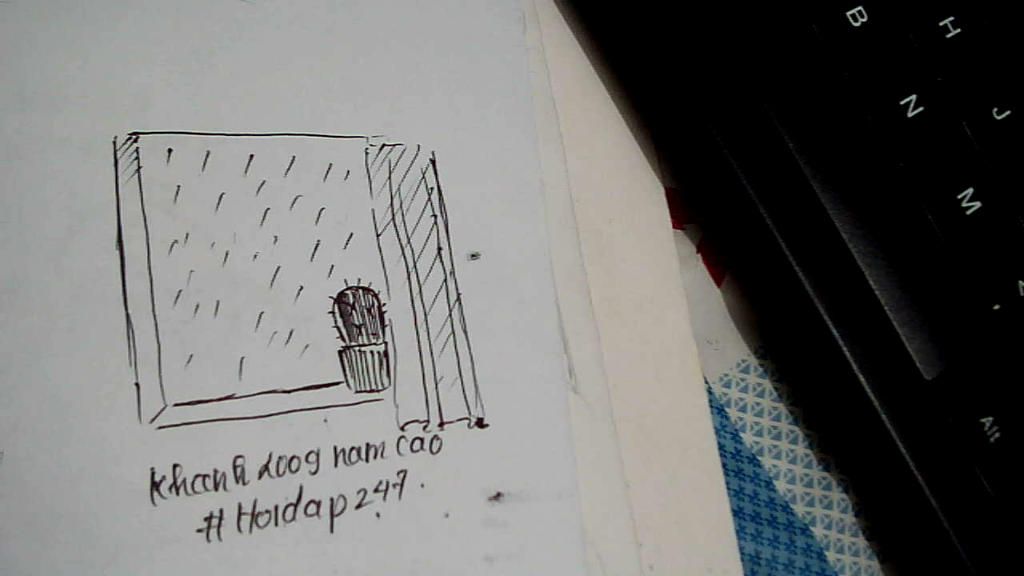 Khanh 2009 nam Cao
# Hoidap247.
B
H
N
J
M
Alt